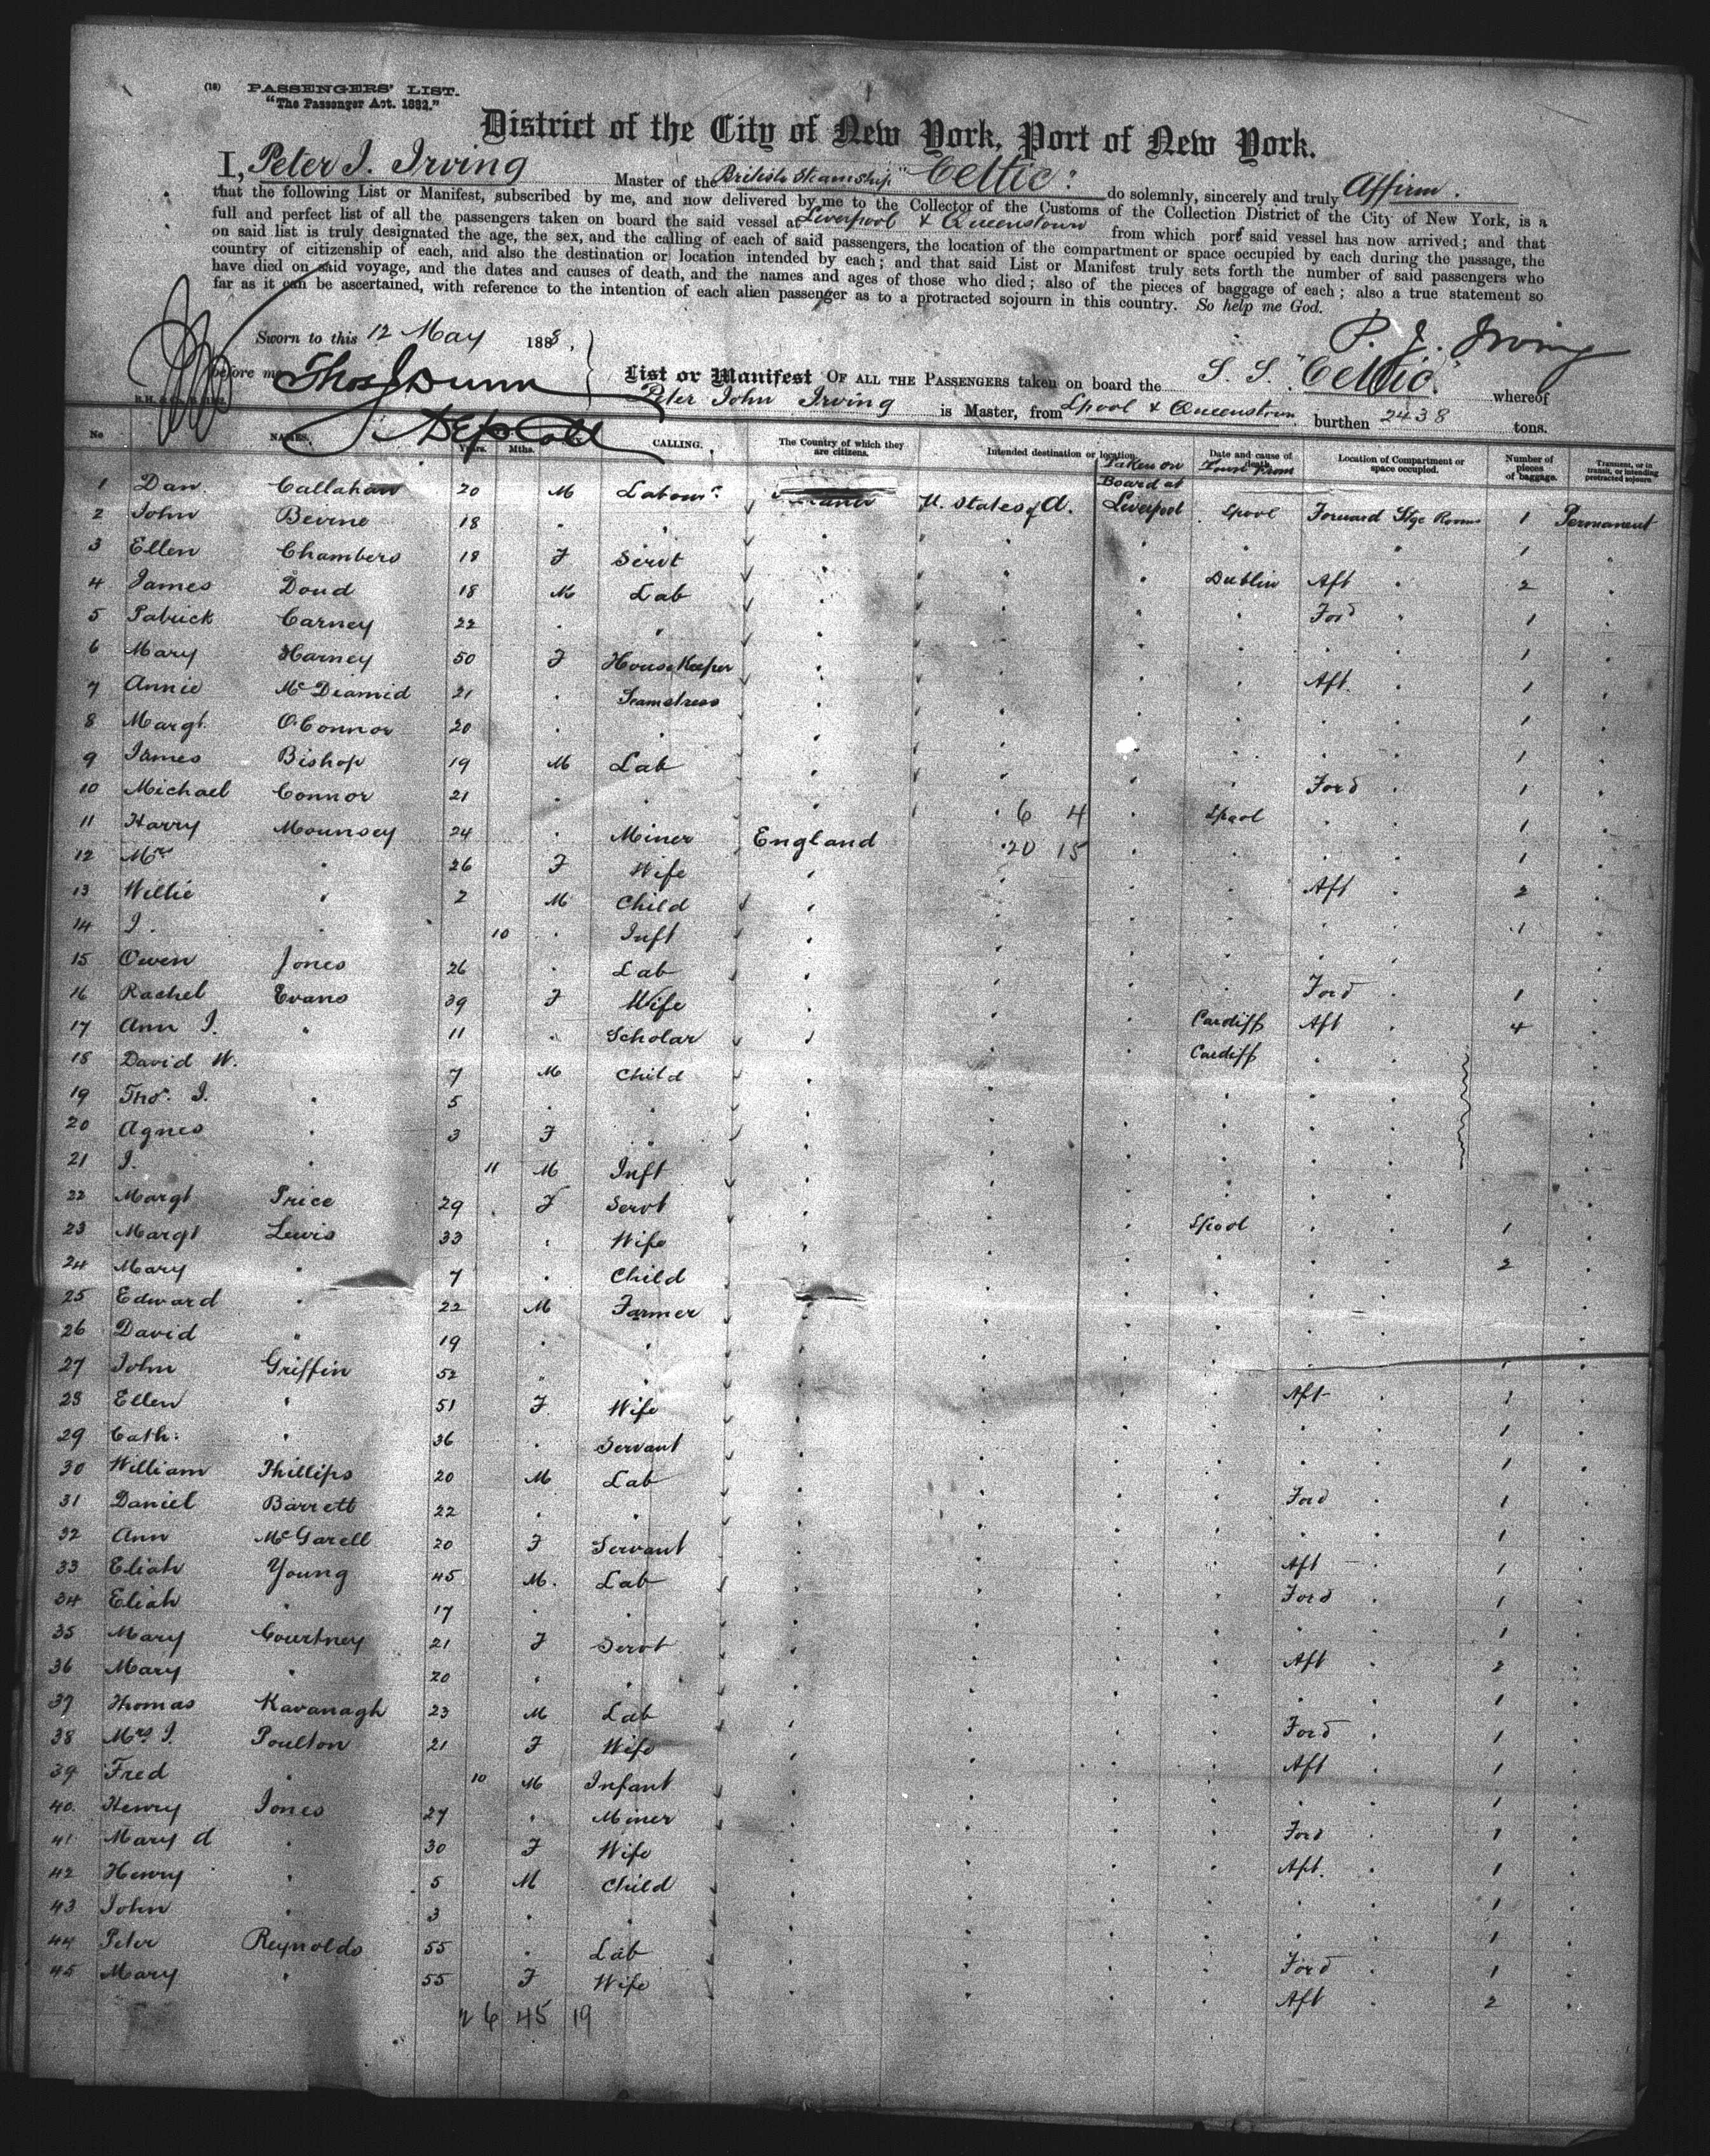 (18) PASSENGERS' LIST.
"The Passenger Act. 1882."
District of the City of New York, Port of New York.
I, Peter J. Irving Master of the British Steamship "Celtic" do solemnly, sincerely and truly Affirm.
that the following List or Manifest, subscribed by me, and now delivered by me to the Collector of the Customs of the Collection District of the City of New York, is a
full and perfect list of all the passengers taken on board the said vessel at Liverpool & Queenstown from which port said vessel has now arrived; and that
on said list is truly designated the age, the sex, and the calling of each of said passengers, the location of the compartment or space occupied by each during the passage, the
country of citizenship of each, and also the destination or location intended by each; and that said List or Manifest truly sets forth the number of said passengers who
have died on said voyage, and the dates and causes of death, and the names and ages of those who died; also of the pieces of baggage of each; also a true statement so
far as it can be ascertained, with reference to the intention of each alien passenger as to a protracted sojourn in this country. So help me God.
Sworn to this 12 May 1888, P. J. Irving
before me Thos J Dunn
List or Manifest OF ALL THE PASSENGERS taken on board the S. S. "Celtic" whereof
Peter John Irving is Master, from Lpool & Queenstown burthen 2438 tons.
Dep Coll
No NAMES. Years. Mths. CALLING. The Country of which they are citizens. Intended destination or location Taken on Board at Date and cause of death. Town from Location of Compartment or space occupied. Number of pieces of baggage. Transient, or in transit, or intending protracted sojourn
1 Dan Callahan 20 M Labour U. States of A. Liverpool Lpool Forward Stge Rooms 1 Permanent
2 John Beirne 18 " " " " " " " 1 "
3 Ellen Chambers 18 F Servt " " " Dublin Aft " 2 "
4 James Doud 18 M Lab " " " " Ford " 1 "
5 Patrick Carney 22 " " " " " " " " 1 "
6 Mary Harney 50 F HouseKeeper " " " " Aft " 1 "
7 Annie McDiamid 21 " Seamstress " " " " " " 1 "
8 Margt. O'Connor 20 " " " " " " " " 1 "
9 James Bishop 19 M Lab " " " " Ford " 1 "
10 Michael Connor 21 " " " " 6 4 " Lpool " " 1 "
11 Harry Mounsey 24 " Miner England 20 15 " " " " 1 "
12 Mrs " 26 F Wife " " " " Aft " 2 "
13 Willie " 2 M Child " " " " " " 1 "
14 I. " 10 " Inft " " " " " " "
15 Owen Jones 26 " Lab " " " " Ford " 1 "
16 Rachel Evans 39 F Wife " " " Cardiff Aft " 4 "
17 Ann J. " 11 " Scholar " " " Cardiff " " "
18 David W. 7 M Child " " " " " " "
19 Thos. J. " 5 " " " " " " " " "
20 Agnes " 3 F " " " " " " " "
21 I. " 11 M Inft " " " " " " "
22 Margt Price 29 F Servt " " " Lpool " " 1 "
23 Margt Lewis 33 " Wife " " " " " " 2 "
24 Mary " 7 " Child " " " " " " "
25 Edward " 22 M Farmer " " " " " " "
26 David " 19 " " " " " " " " 1 "
27 John Griffin 52 " " " " " " Aft " 1 "
28 Ellen " 51 F Wife " " " " " " 1 "
29 Cath: " 36 " Servant " " " " " " 1 "
30 William Phillips 20 M Lab " " " " Ford " 1 "
31 Daniel Barrett 22 " " " " " " " " 1 "
32 Ann McGarell 20 F Servant " " " " Aft " 1 "
33 Eliah Young 45 M. Lab " " " " Ford " 1 "
34 Eliah " 17 " " " " " " " " 1 "
35 Mary Courtney 21 F Servt " " " " Aft " 2 "
36 Mary " 20 " " " " " " " " 1 "
37 Thomas Kavanagh 23 M Lab " " " " Ford " 1 "
38 Mrs J. Poulton 21 F Wife " " " " Aft " 1 "
39 Fred " 10 M Infant " " " " " " 1 "
40 Henry Jones 27 " Miner " " " " Ford " 1 "
41 Mary A " 30 F Wife " " " " Aft. " 1 "
42 Henry " 5 M Child " " " " " " 1 "
43 John " 3 " " " " " " " " 1 "
44 Peter Reynolds 55 " Lab " " " " Ford " 1 "
45 Mary " 55 F Wife " " " " Aft " 2 "
26 45 19